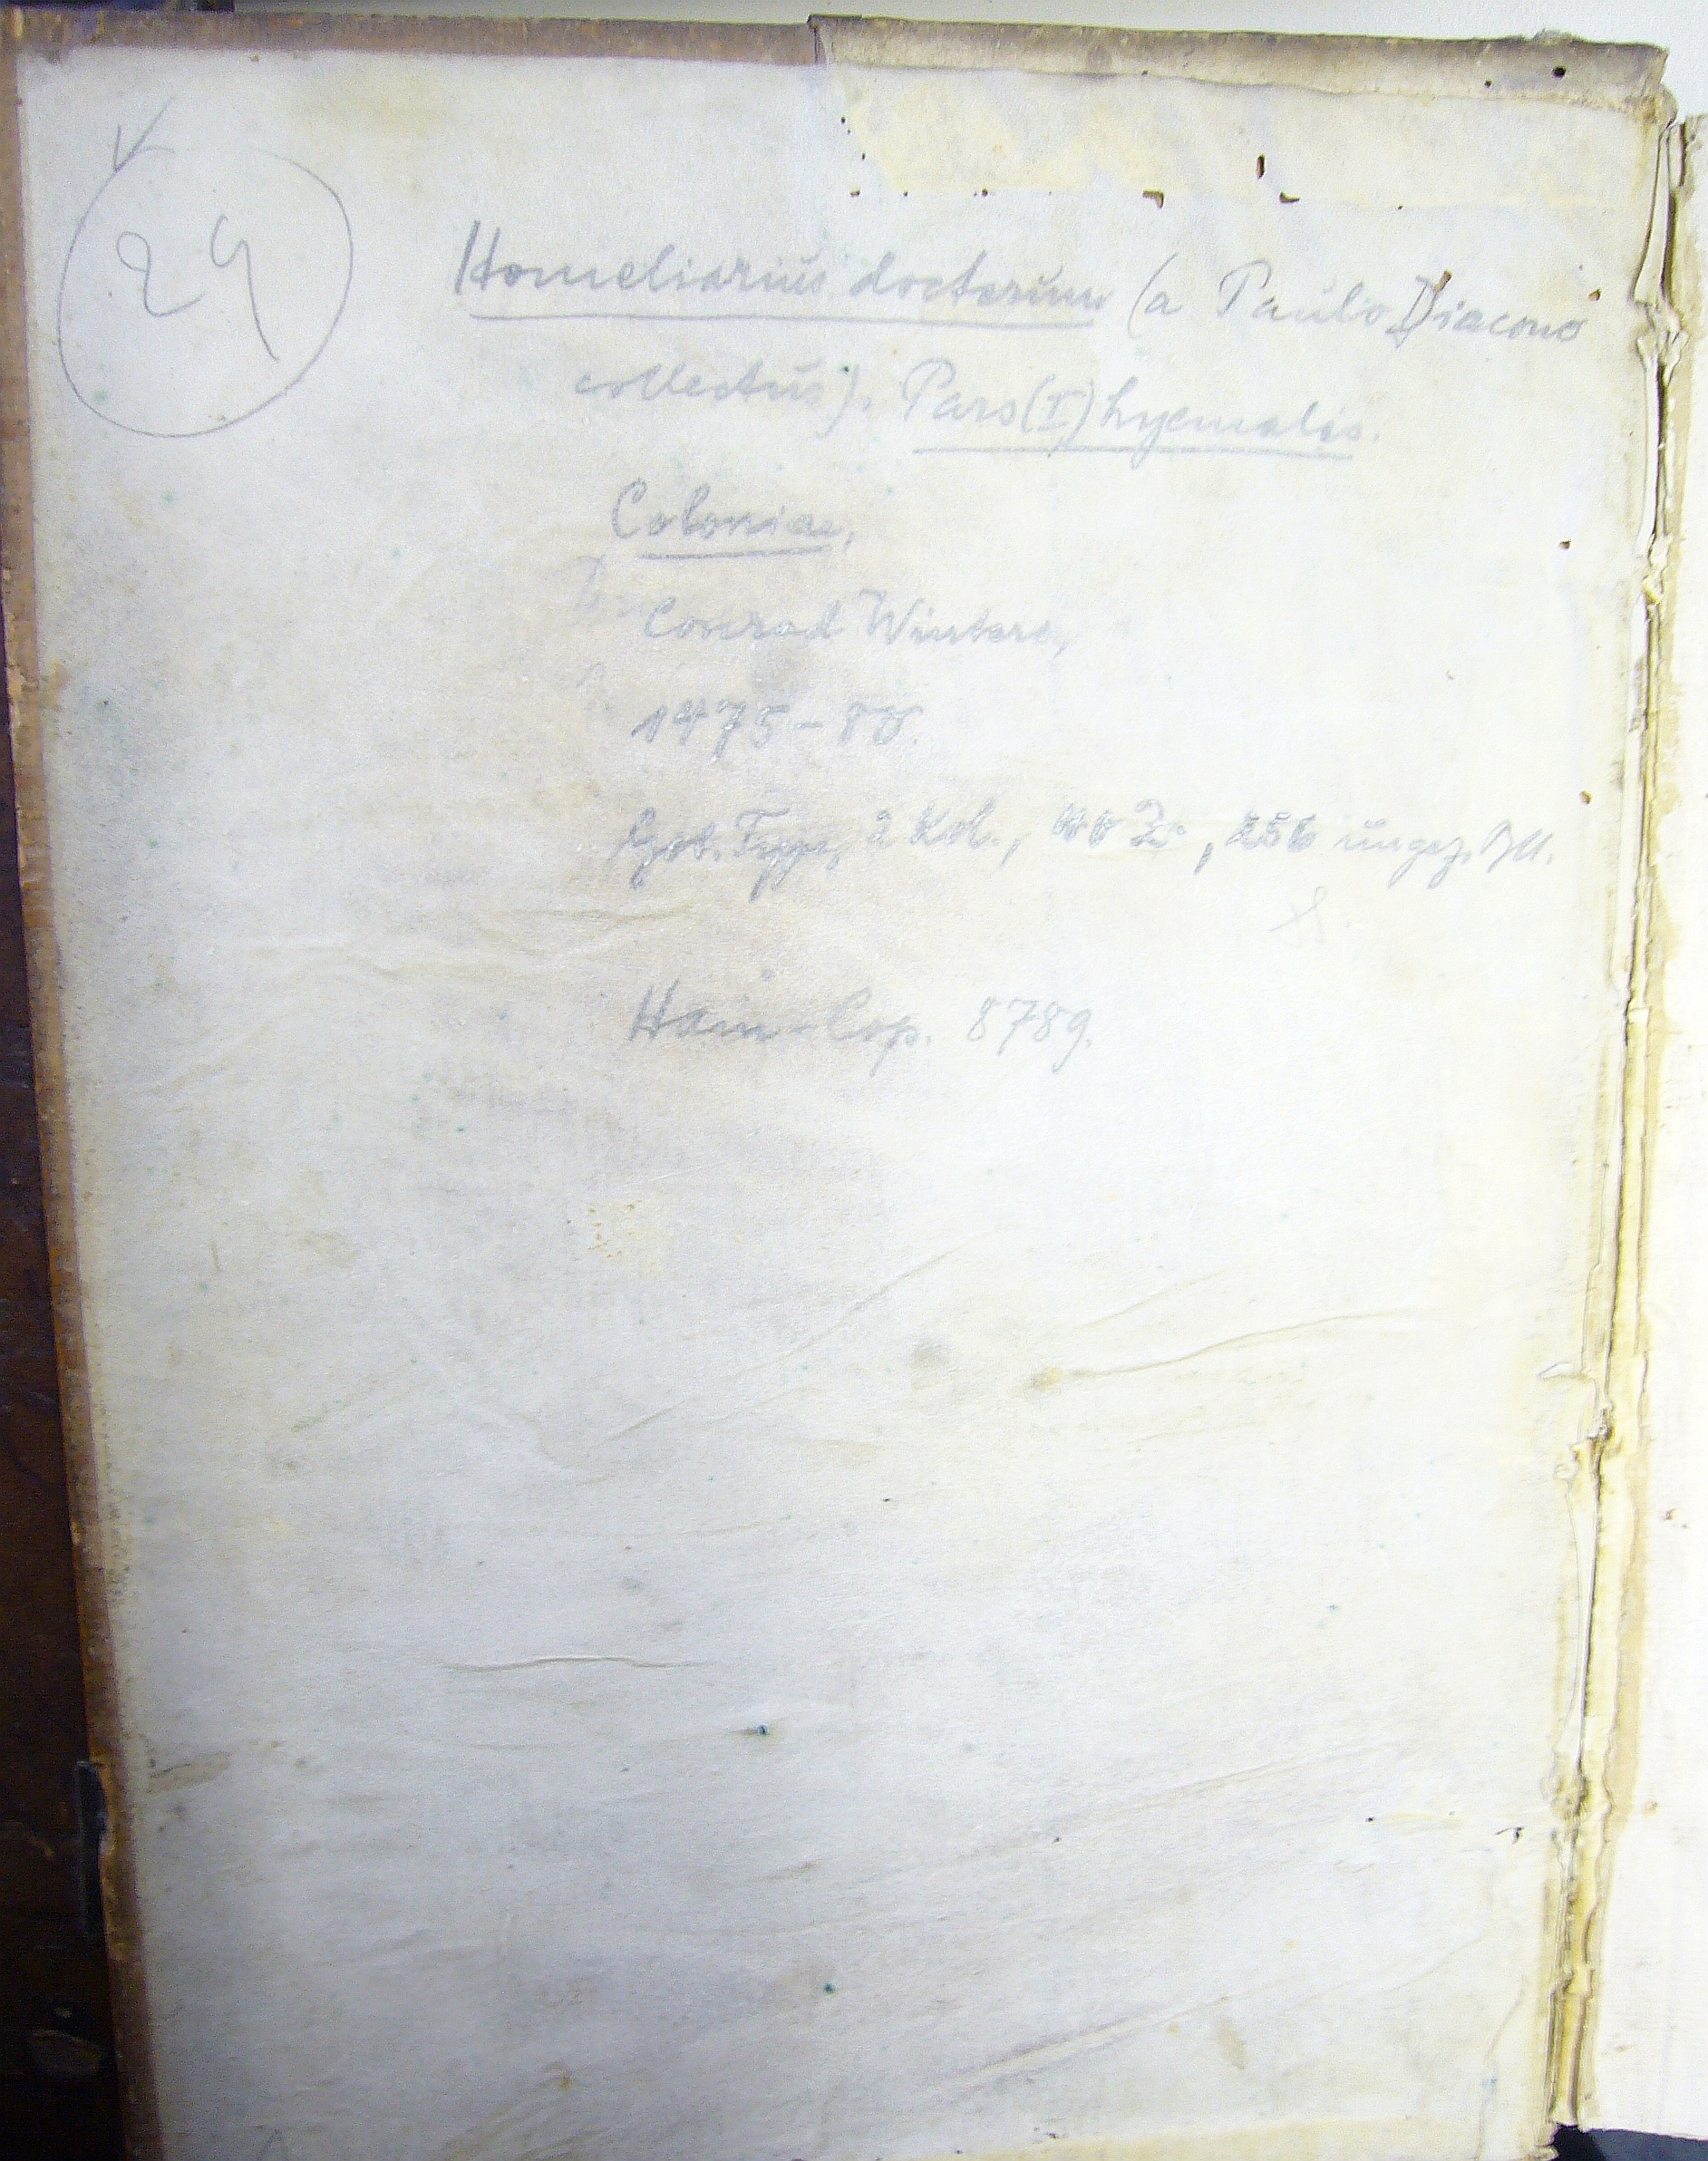 29
Homeliarius doctorum (a Paulo Diacono
collectus). Pars (I) hyemalis.
Coloniae,
Conrad Winters,
1475-80.
Got. Type, 2 Kol., 40 Z., 256 ungez. Bll.
Hain-Cop. 8789.